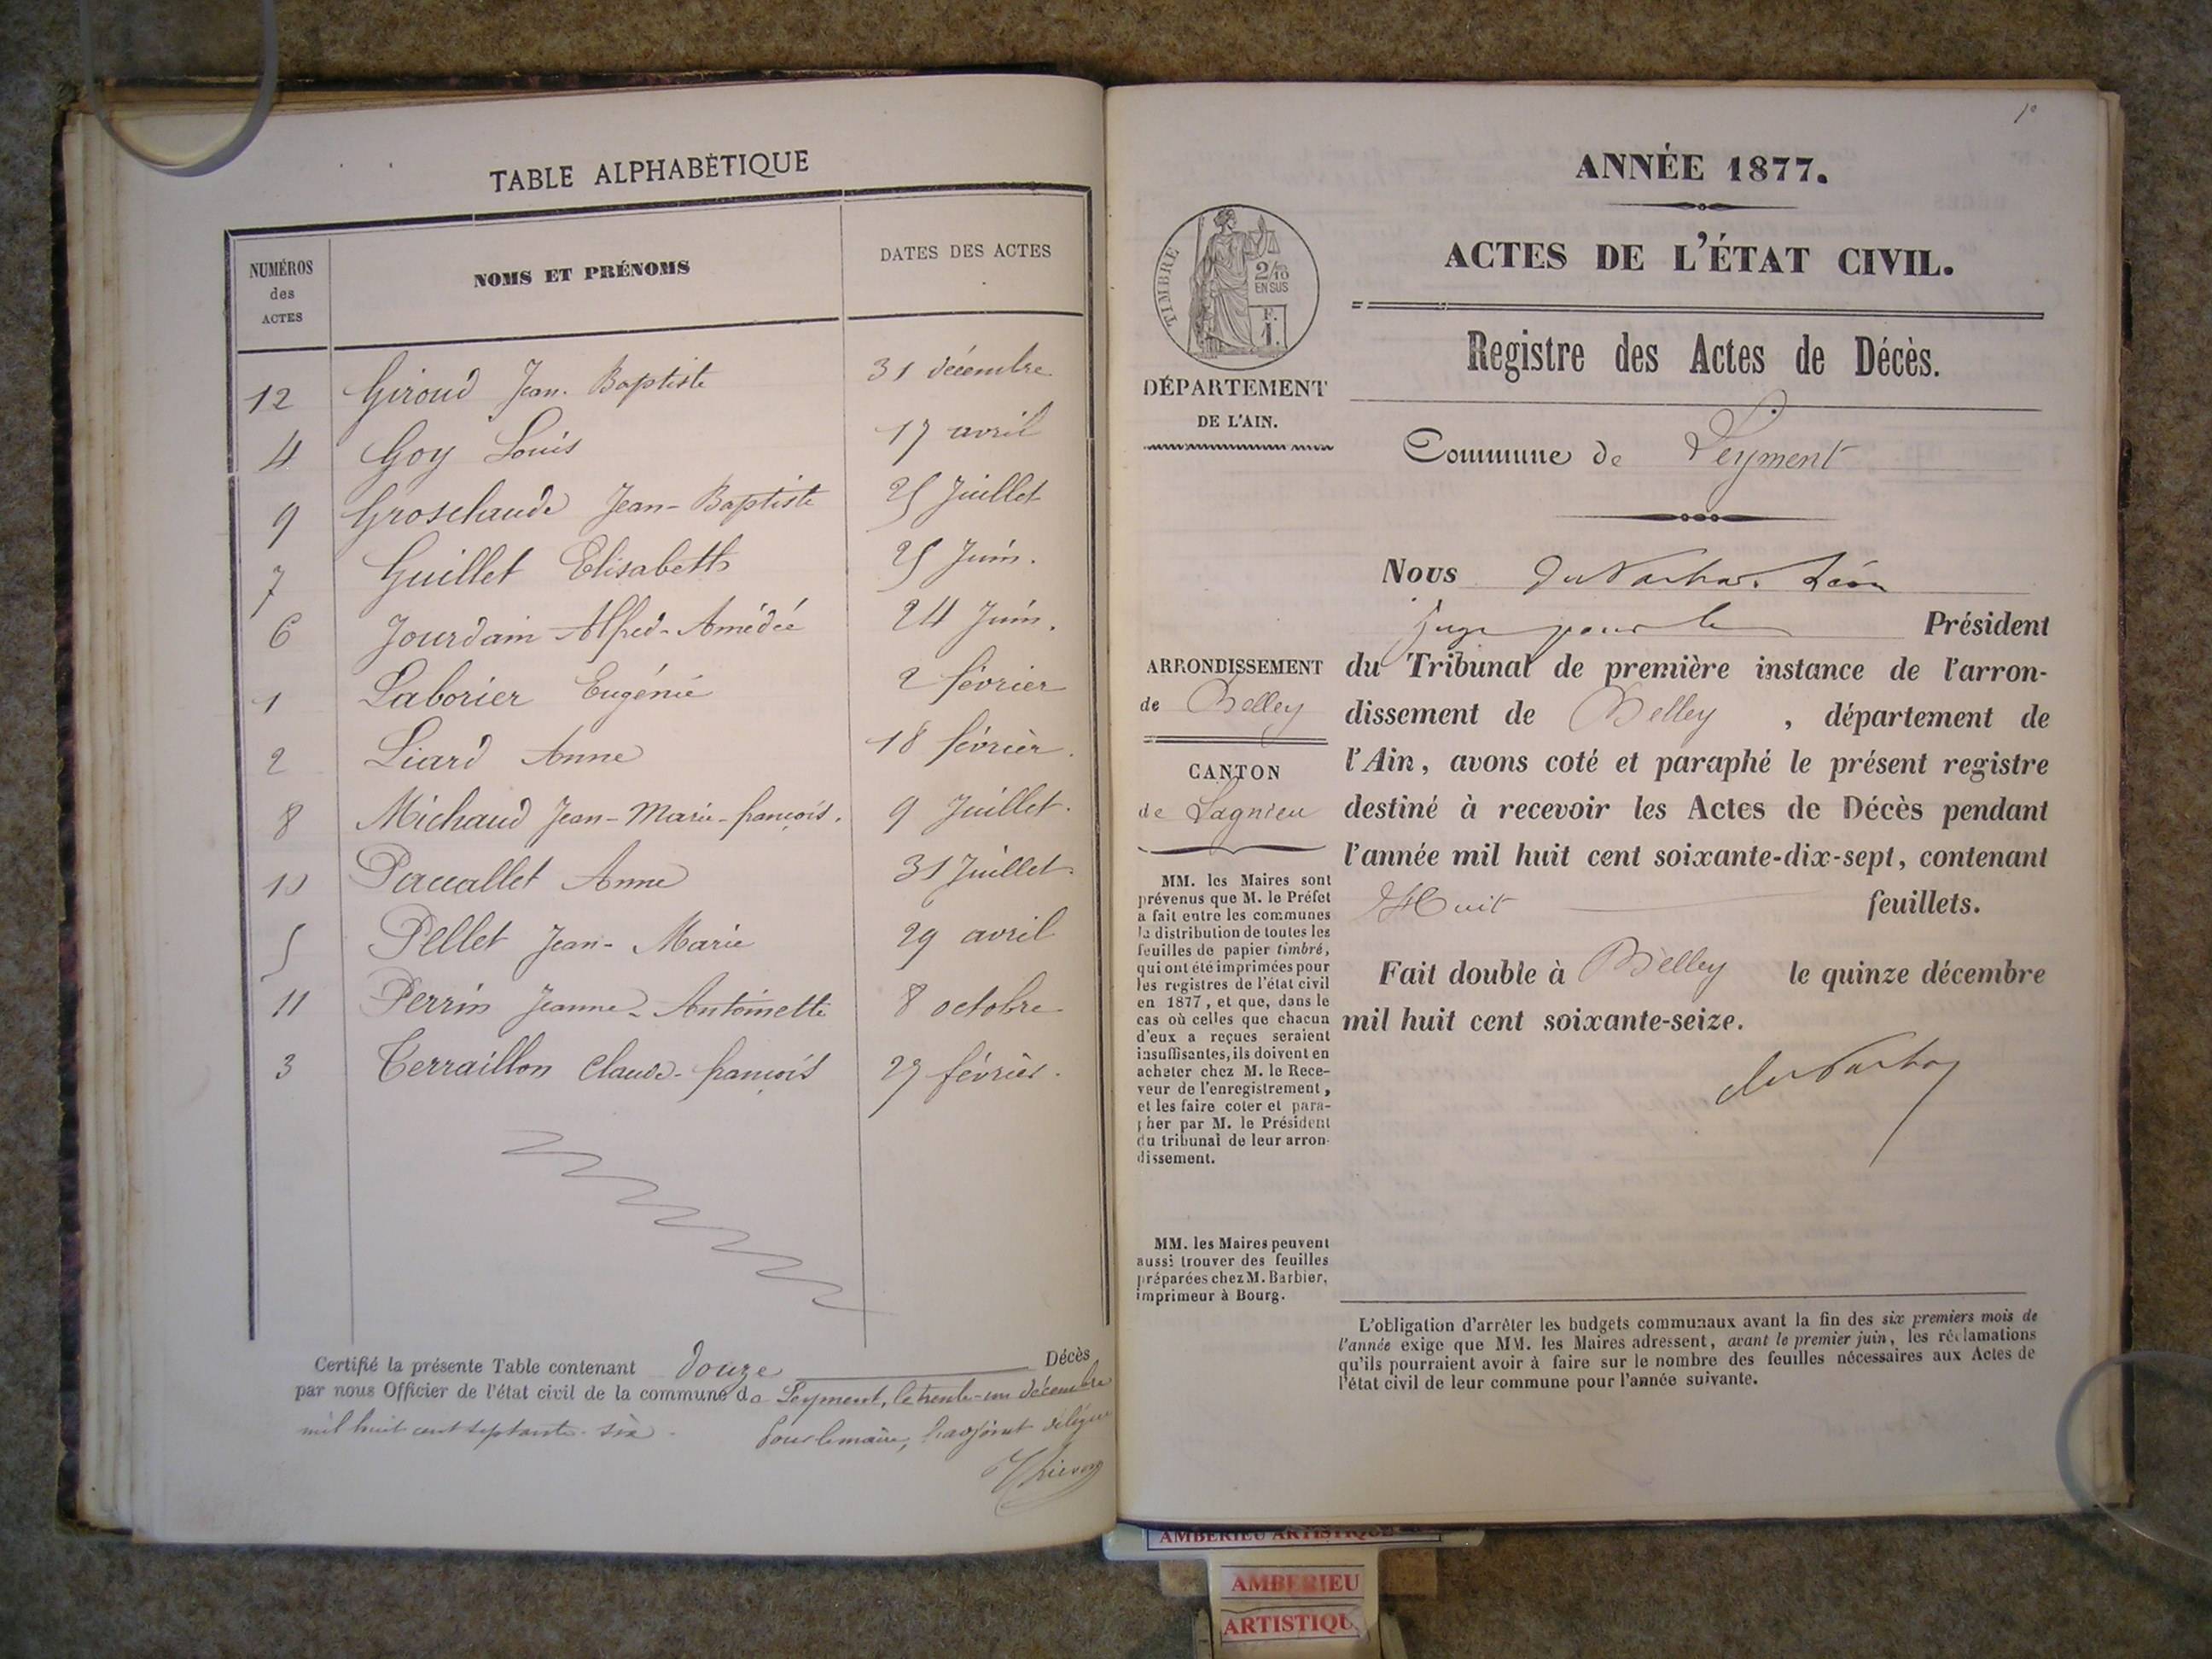 TABLE ALPHABÉTIQUE
NUMÉROS des ACTES NOMS ET PRÉNOMS DATES DES ACTES
12 Giroud Jean-Baptiste 31 décembre
4 Goy Louis 17 avril
9 Grosclaude Jean-Baptiste 25 Juillet
7 Guillet Elisabeth 25 Juin.
6 Jourdain Alfred-Amédée 24 Juin.
1 Laborier Eugénie 2 février
2 Liard Anne 18 février.
8 Michaud Jean-Marie-françois. 9 Juillet.
10 Paccallet Anne 31 Juillet.
5 Pellet Jean-Marie 29 avril
11 Perrin Jeanne-Antoinette 8 octobre
3 Terraillon Claude-françois 27 février.
Certifié la présente Table contenant douze Décès
par nous Officier de l'état civil de la commune de Leyment, le trente-un décembre
mil huit cent septante-six. Pour le maire, l'adjoint délégué
1e
ANNÉE 1877.
ACTES DE L'ÉTAT CIVIL.
Registre des Actes de Décès.
Commune de Leyment
TIMBRE
2/10
EN SUS
F.
1.
DÉPARTEMENT
DE L'AIN.
ARRONDISSEMENT
de Belley
CANTON
de Lagnieu
MM. les Maires sont
prévenus que M. le Préfet
a fait entre les communes
la distribution de toutes les
feuilles de papier timbré,
qui ont été imprimées pour
les registres de l'état civil
en 1877, et que, dans le
cas où celles que chacun
d'eux a reçues seraient
insuffisantes, ils doivent en
acheter chez M. le Rece-
veur de l'enregistrement,
et les faire coter et para-
pher par M. le Président
du tribunal de leur arron-
dissement.
MM. les Maires peuvent
aussi trouver des feuilles
préparées chez M. Barbier,
imprimeur à Bourg.
Nous Léon
Juge pour le Président
du Tribunal de première instance de l'arron-
dissement de Belley, département de
l'Ain, avons coté et paraphé le présent registre
destiné à recevoir les Actes de Décès pendant
l'année mil huit cent soixante-dix-sept, contenant
Huit feuillets.
Fait double à Belley le quinze décembre
mil huit cent soixante-seize.
L'obligation d'arrêter les budgets communaux avant la fin des six premiers mois de
l'année exige que MM. les Maires adressent, avant le premier juin, les réclamations
qu'ils pourraient avoir à faire sur le nombre des feuilles nécessaires aux Actes de
l'état civil de leur commune pour l'année suivante.
AMBERIEU ARTISTIQUE
AMBERIEU
ARTISTIQU